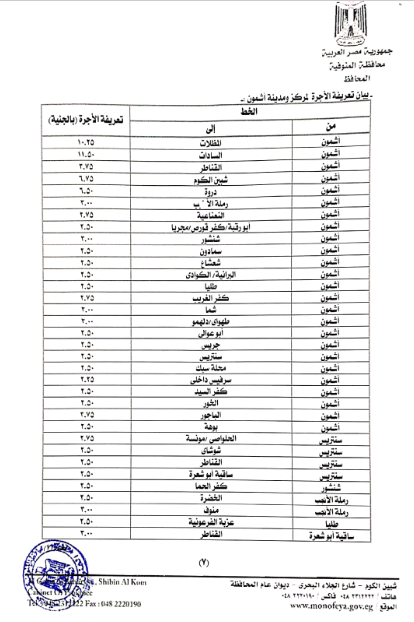 جمهورية مصر العربية
محافظة المنوفية
المحافظ
ـ بيان تعريفة الأجرة لمركز ومدينة أشمون :ـ
الخط تعريفة الأجرة (بالجنية)
من إلى
أشمون المظلات ١٠.٢٥
أشمون السادات ١١.٥٠
أشمون القناطر ٣.٧٥
أشمون شبين الكوم ٦.٧٥
أشمون دروة ٦.٥٠
أشمون رملة ٣.٠٠
أشمون النعناعية ٢.٧٥
أشمون أبو رقبة/كفر قورص/مجريا ٢.٥٠
أشمون شنشور ٣.٠٠
أشمون سمادون ٢.٥٠
أشمون شعشاع ٢.٥٠
أشمون البرانية/الكوادى ٢.٥٠
أشمون طليا ٢.٥٠
أشمون كفر الغريب ٢.٧٥
أشمون شما ٣.٠٠
أشمون طهواى/دلهمو ٣.٠٠
أشمون ابو عوالى ٢.٥٠
أشمون جريس ٢.٥٠
أشمون سنتريس ٢.٥٠
أشمون محلة سبك ٢.٥٠
أشمون سرفيس داخلى ٢.٢٥
أشمون كفر السيد ٢.٥٠
أشمون الخور ٢.٥٠
أشمون الباجور ٣.٧٥
أشمون بوهة ٢.٥٠
سنتريس الحلواصى/مونسة ٢.٧٥
سنتريس شوشاى ٢.٥٠
سنتريس القناطر ٢.٥٠
سنتريس ساقية أبو شعرة ٢.٥٠
شنشور كفر الحما ٢.٥٠
رملة الأنجب الخضرة ٢.٥٠
رملة الأنجب منوف ٣.٠٠
طليا عزبة الفرعونية ٢.٥٠
ساقية أبو شعرة القناطر ٣.٠٠
(٧)
شبين الكوم - شارع الجلاء البحرى - ديوان عام المحافظة
هاتف/ ٠٤٨ ٢٣١٢٢٢٢ فاكس/ ٠٤٨ ٢٢٢٠١٩٠
الموقع / www.monofeya.gov.eg
Shibin Al Kom
Fax : 048 2220190